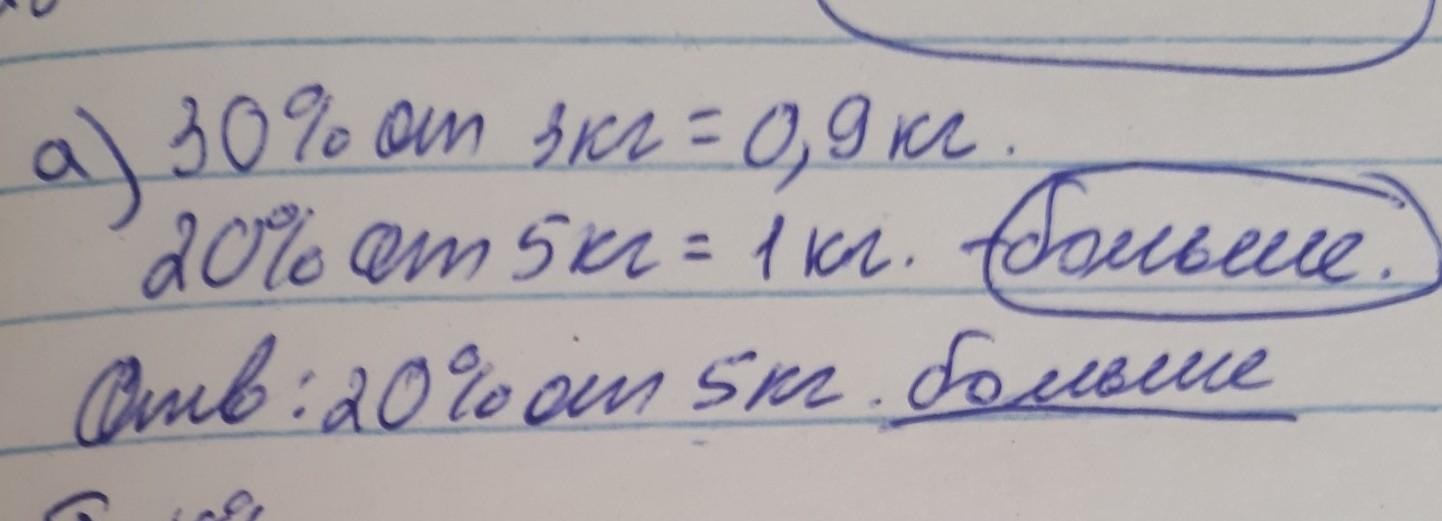 а) 30% от 3кг = 0,9 кг.
20% от 5 кг = 1 кг. - больше.
Отв: 20% от 5 кг. больше